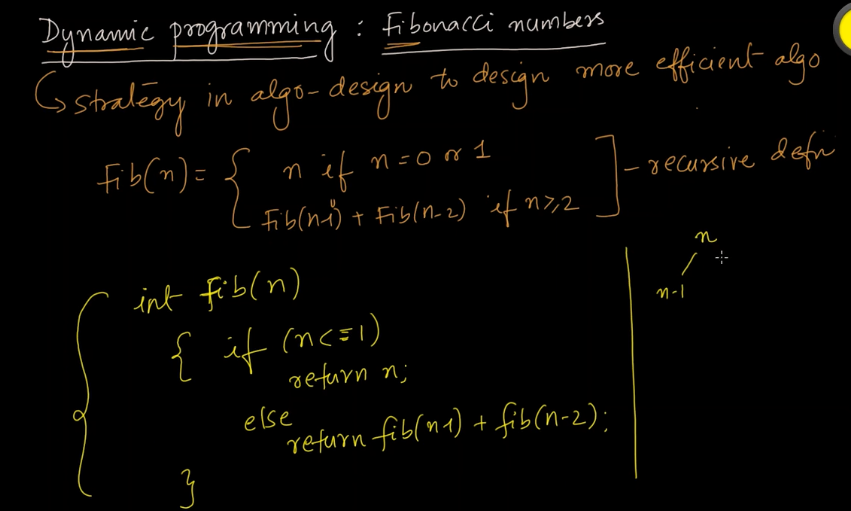 Dynamic programming : Fibonacci numbers
↳ strategy in algo-design to design more efficient algo
Fib(n) = { n if n=0 or 1
Fib(n-1) + Fib(n-2) if n≥2 ] - recursive defn
int fib(n)
{ if (n<=1)
return n;
else
return fib(n-1) + fib(n-2);
}
n
n-1